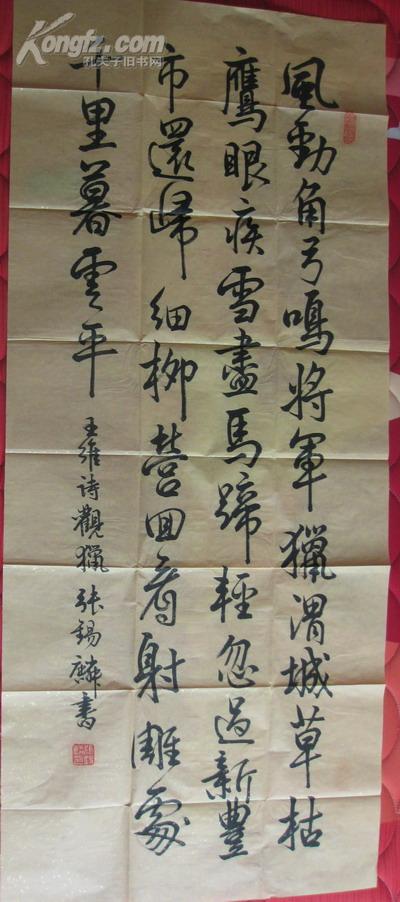 風動角弓鳴將軍獵渭城草枯
鷹眼疾雪盡馬蹄輕忽過新豐
市還歸細柳營回看射雕處
千里暮雲平
王維詩觀獵 张錫麟書
Kongfz.com
孔夫子旧书网